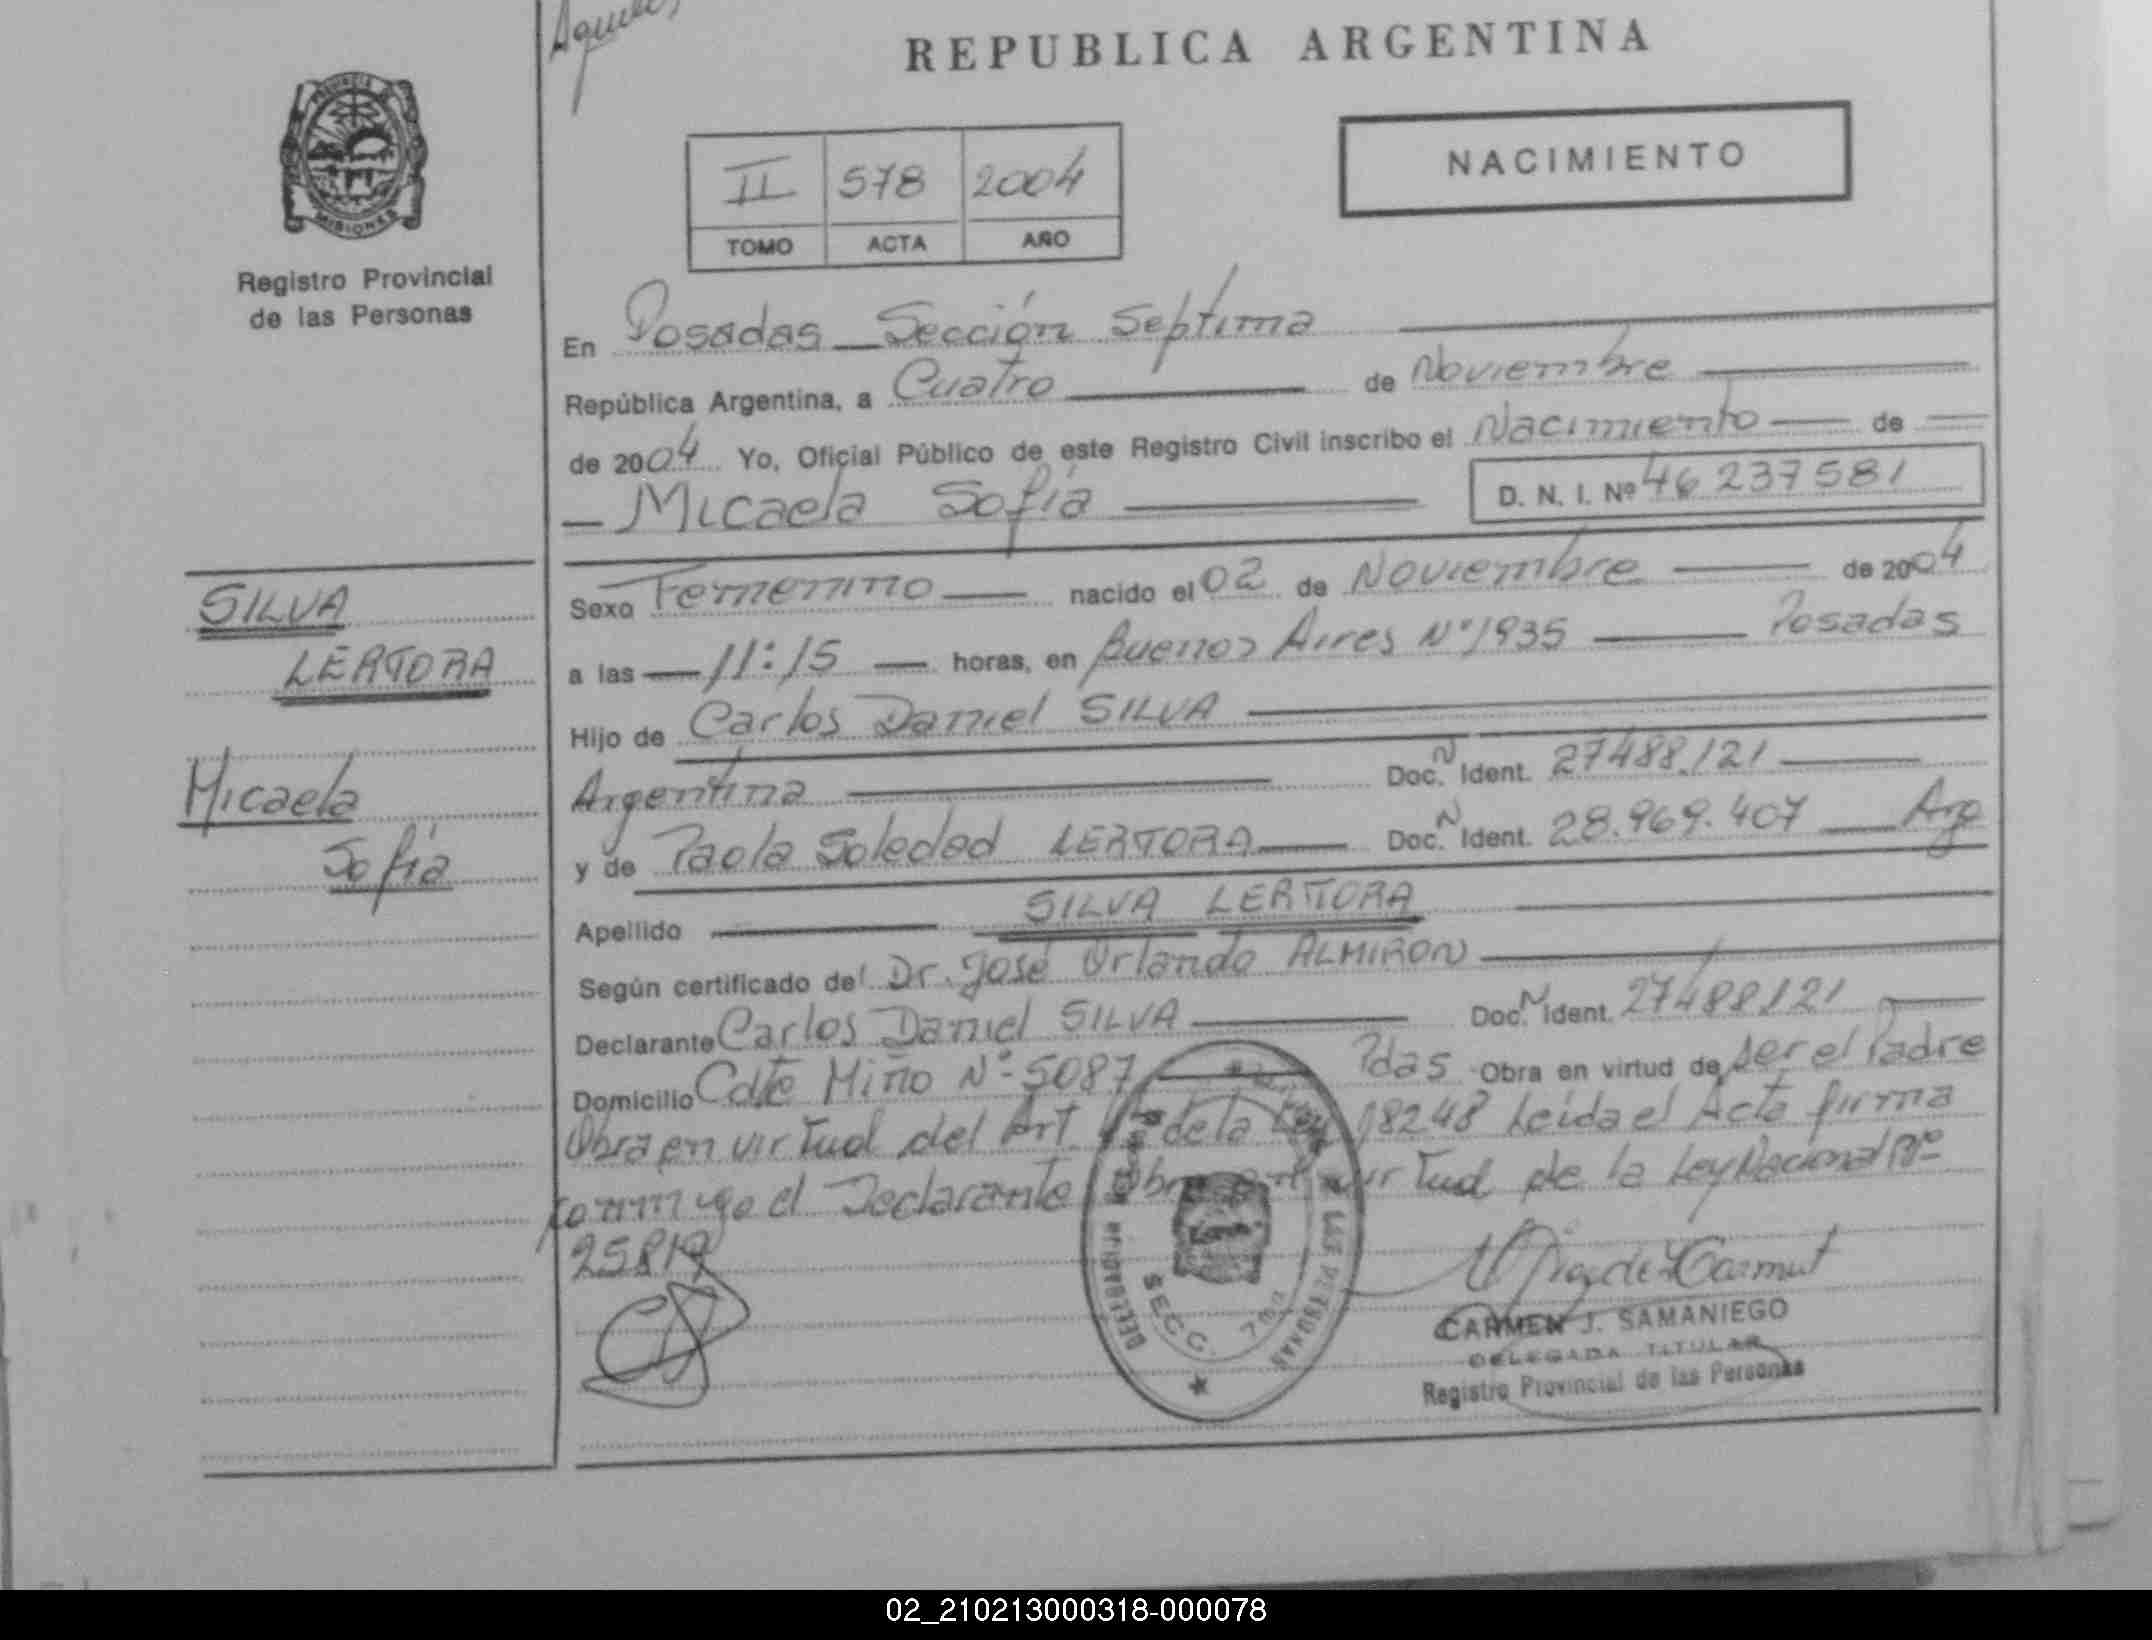 REPUBLICA ARGENTINA
PROVINCIA DE
MISIONES
Registro Provincial
de las Personas
NACIMIENTO
II 578 2004
TOMO ACTA AÑO
En Posadas Sección Septima
República Argentina, a Cuatro de Noviembre
de 2004 Yo, Oficial Público de este Registro Civil inscribo el Nacimiento de
Micaela Sofía D. N. I. Nº 46 237581
SILVA
LERTORA
Micaela
Sofía
Sexo Femenino nacido el 02 de Noviembre de 2004
a las 11:15 horas, en Buenos Aires Nº 1935 Posadas
Hijo de Carlos Daniel SILVA
Argentina Doc. N Ident. 27488.121
y de Paola Soledad LERTORA Doc. N Ident. 28.969.407 Arg
Apellido SILVA LERTORA
Según certificado del Dr. José Orlando ALMIRON
Declarante Carlos Daniel SILVA Doc. N Ident. 27488.121
Domicilio Cdte Miño Nº 5087 Pdas Obra en virtud de ser el Padre
Obra en virtud del Art de la Ley 18248 Leída el Acta firma
conmigo el Declarante Obra en virtud de la Ley Nacional Nº
25819
DELEGACIÓN
LAS PERSONAS
SECC. 7ma
CARMEN J. SAMANIEGO
DELEGADA TITULAR
Registro Provincial de las Personas
02_210213000318-000078